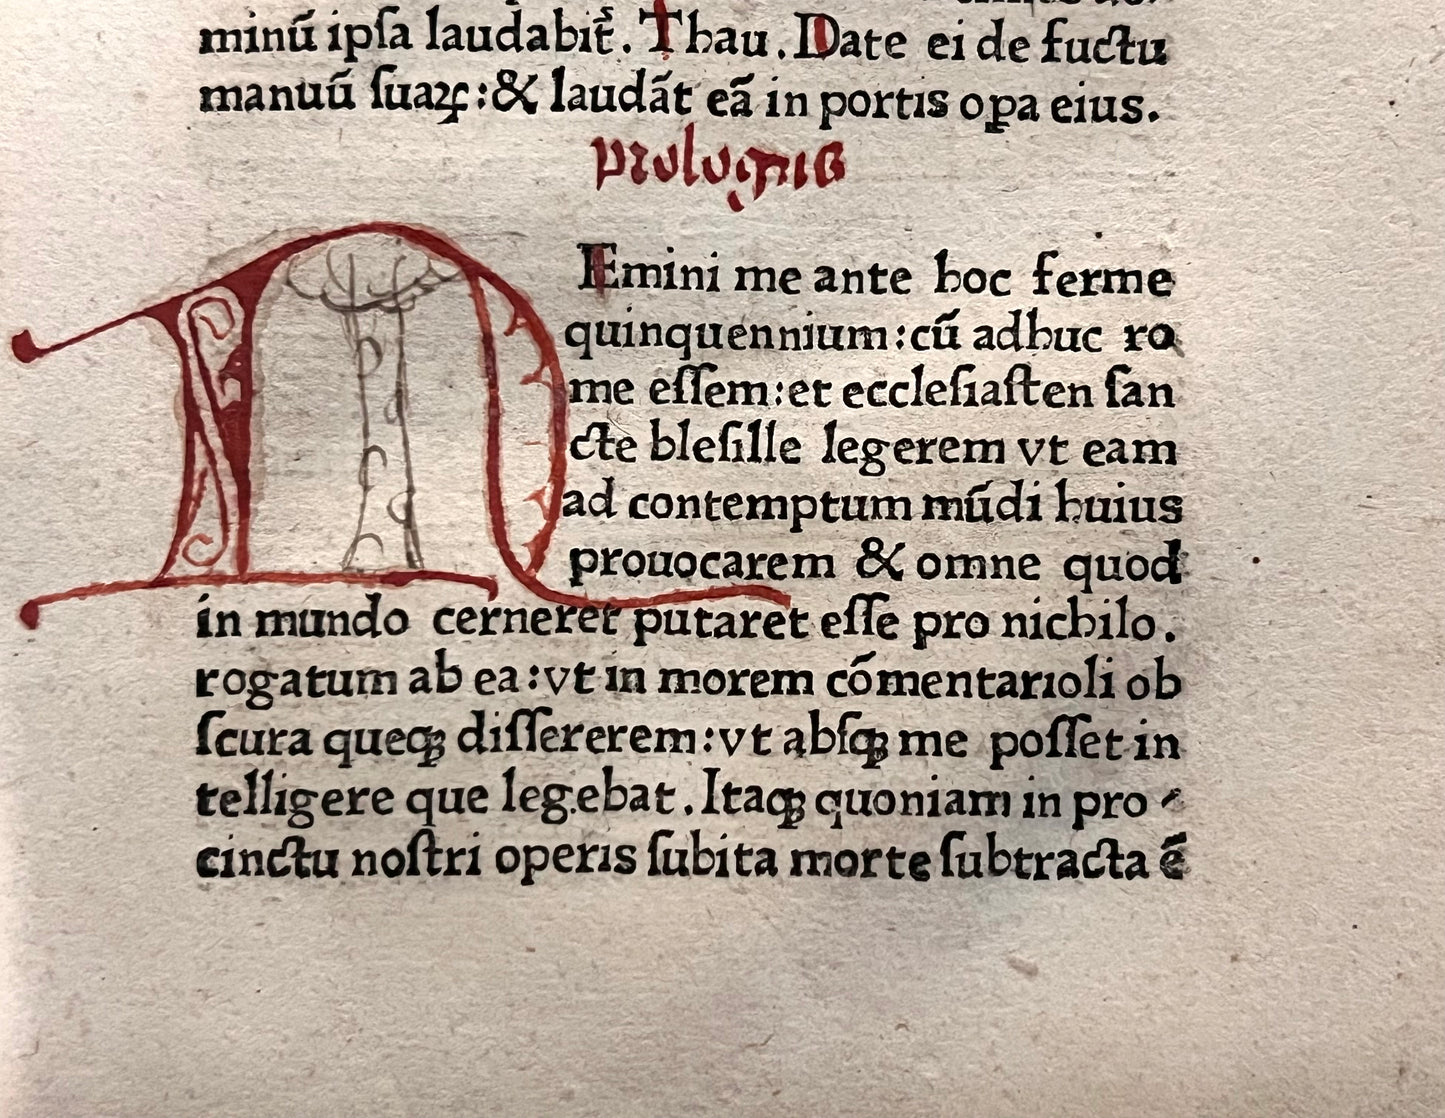 minū ipſa laudabit᷑. Thau. Date ei de fuctu
manuū ſuaꝝ:& laudāt eā in portis oꝑa eius.
prologus
MEmini me ante hoc ferme
quinquennium:cū adhuc ro
me eſſem:et eccleſiaſten ſan
cte bleſille legerem vt eam
ad contemptum mūdi huius
prouocarem & omne quod
in mundo cerneret putaret eſſe pro nichilo.
rogatum ab ea:vt in morem cōmentarioli ob
ſcura queqꝫ diſſererem:vt abſqꝫ me poſſet in
telligere que legebat. Itaqꝫ quoniam in pro
cinctu noſtri operis ſubita morte ſubtracta ē